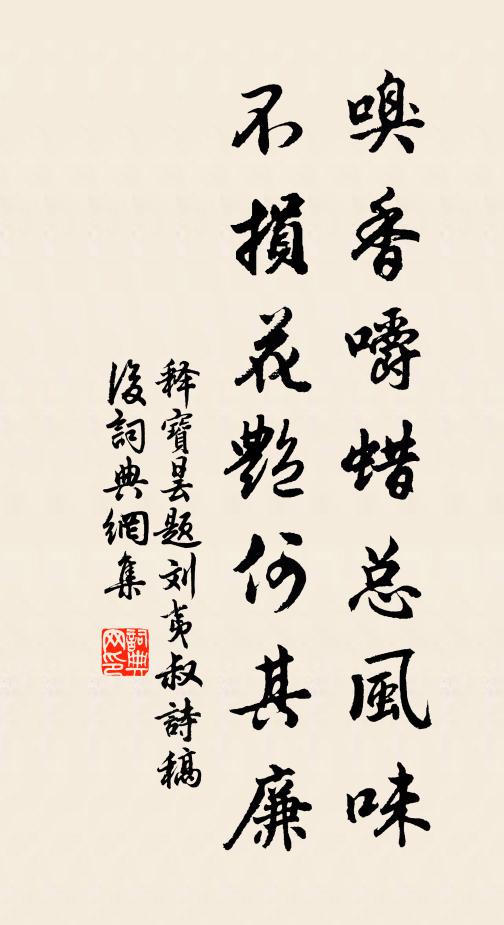 嗅香嚼蜡总風味
不損花艷何其廉
释寶曇題刘夷叔詩稿
後詞典網集
詞典网印